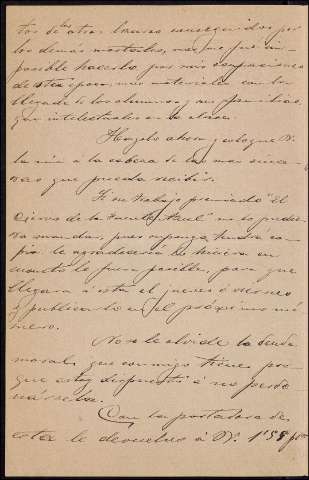 tos de los otros lauros conseguidos por
los demás mortales, mas me fué im-
posible hacerlo por mis ocupaciones
de esta época, mas materiales con la
llegada de los alumnos y sus familias,
que intelectuales en la clase.
Hágolo ahora y coloque V.
la mia a la cabeza de las mas sincera
que pueda recibir.
Si su trabajo premiado "El
Ciervo de la Fuente Azul" no lo pudie-
ra mandar, pues supongo tendrá co-
pia le agradeceria lo hiciera en
cuanto le fuera posible, para que
llegara a ésta el jueves ó viernes
y publicarlo en el próximo nú-
mero.
No se le olvide la deuda
moral que conmigo tiene por-
que estoy dispuesto á no perdo-
nársela.
Con la portadora de
esta le devuelvo á V. 1'55 ptas